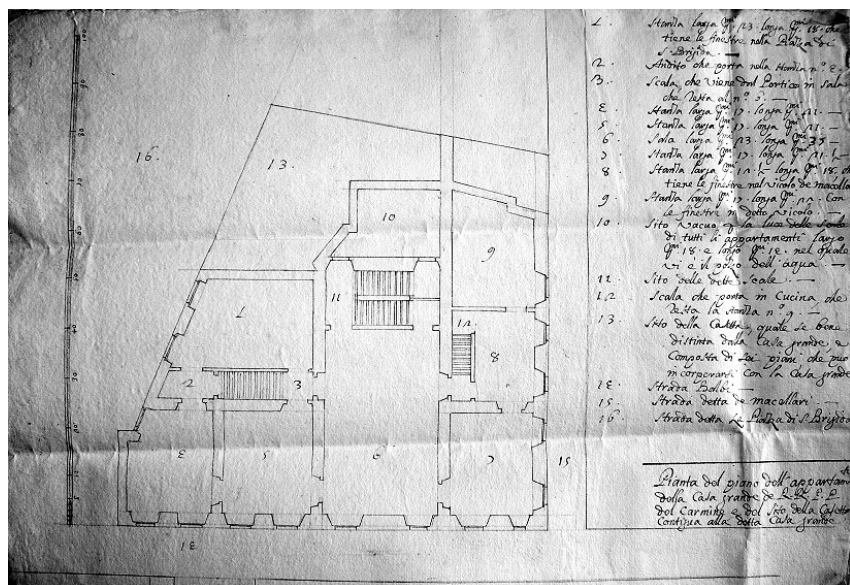 1. Stanza larga
tiene le finestre nella Piazza di
S. Brigida. —
2. Andito che porta nella stanza n.º
3. Scala, che viene dal Portico in Sala
che resta al n.º 6. —
4. Stanza larga P.mi 17. longa P.mi —
5. Stanza larga P.mi 17. longa P.mi 21. —
6. Sala larga P.mi 23. longa P.mi 35 —
7. Stanza larga P.mi 17. longa P.mi 21.
8. Stanza larga longa P.mi 18.
tiene le finestre nel vicolo de macella
9. Stanza larga P.mi 17. longa P.mi con
le finestre in detto vicolo. —
10. Sito vacuo la luce delle Scale
di tutti li appartamenti largo
P.mi 18. e longo P.mi nel quale
vi è il pozzo dell'aqua. —
11. Sito delle dette Scale. —
12. Scala che porta in Cucina, che
resta la stanza n.º 9. —
13. Sito della Casetta, quale se bene
distinta dalla Casa grande e
composta di piani che può
incorporarsi con la Casa grande
14. Strada Balbi —
15. Strada detta de macellari. —
16. Strada detta la Piazza di S. Brigida
Pianta del piano dell'appartam.to
della Casa grande de
del Carmine e del Sito della Casetta
Contigua alla detta Casa grande.
16.
13.
10
9
1
11
12
8
2
3
4
5
6
7
15
14